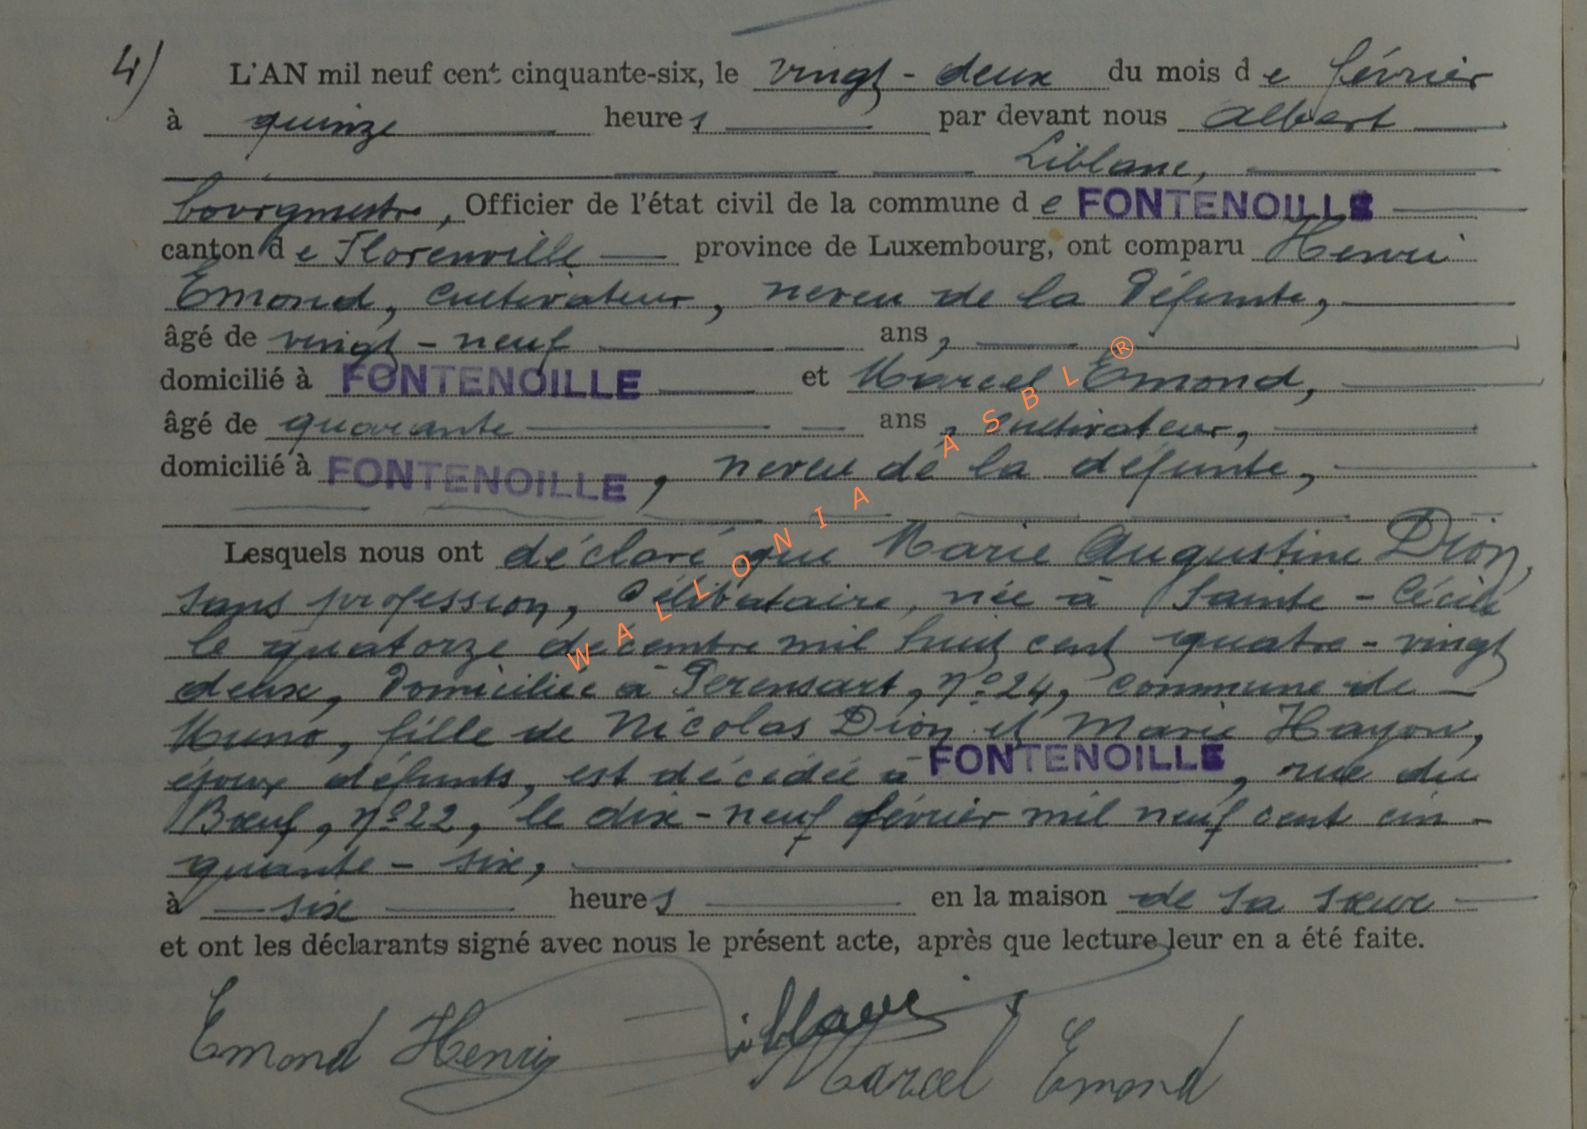 4)
L'AN mil neuf cent cinquante-six, le vingt-deux du mois de février
à quinze heures par devant nous Albert
Liblanc,
bourgmestre, Officier de l'état civil de la commune de FONTENOILLE
canton de Florenville province de Luxembourg, ont comparu Henri
Emond, cultivateur, neveu de la Défunte,
âgé de vingt-neuf ans,
domicilié à FONTENOILLE et Marcel Emond,
âgé de quarante ans, cultivateur,
domicilié à FONTENOILLE, neveu de la défunte,
Lesquels nous ont déclaré que Marie Augustine Dion,
sans profession, Célibataire, née à Sainte-Cécile
le quatorze décembre mil huit cent quatre-vingt
deux, Domiciliée à Perensart, n° 24, commune de
Muno, fille de Nicolas Dion et Marie Hayon,
époux défunts, est décédée à FONTENOILLE, rue du
Bœuf, n° 22, le dix-neuf février mil neuf cent cin-
quante-six,
à six heures en la maison de sa sœur
et ont les déclarants signé avec nous le présent acte, après que lecture leur en a été faite.
Emond Henri Liblanc
Marcel Emond
WALLONIA ASBL ®